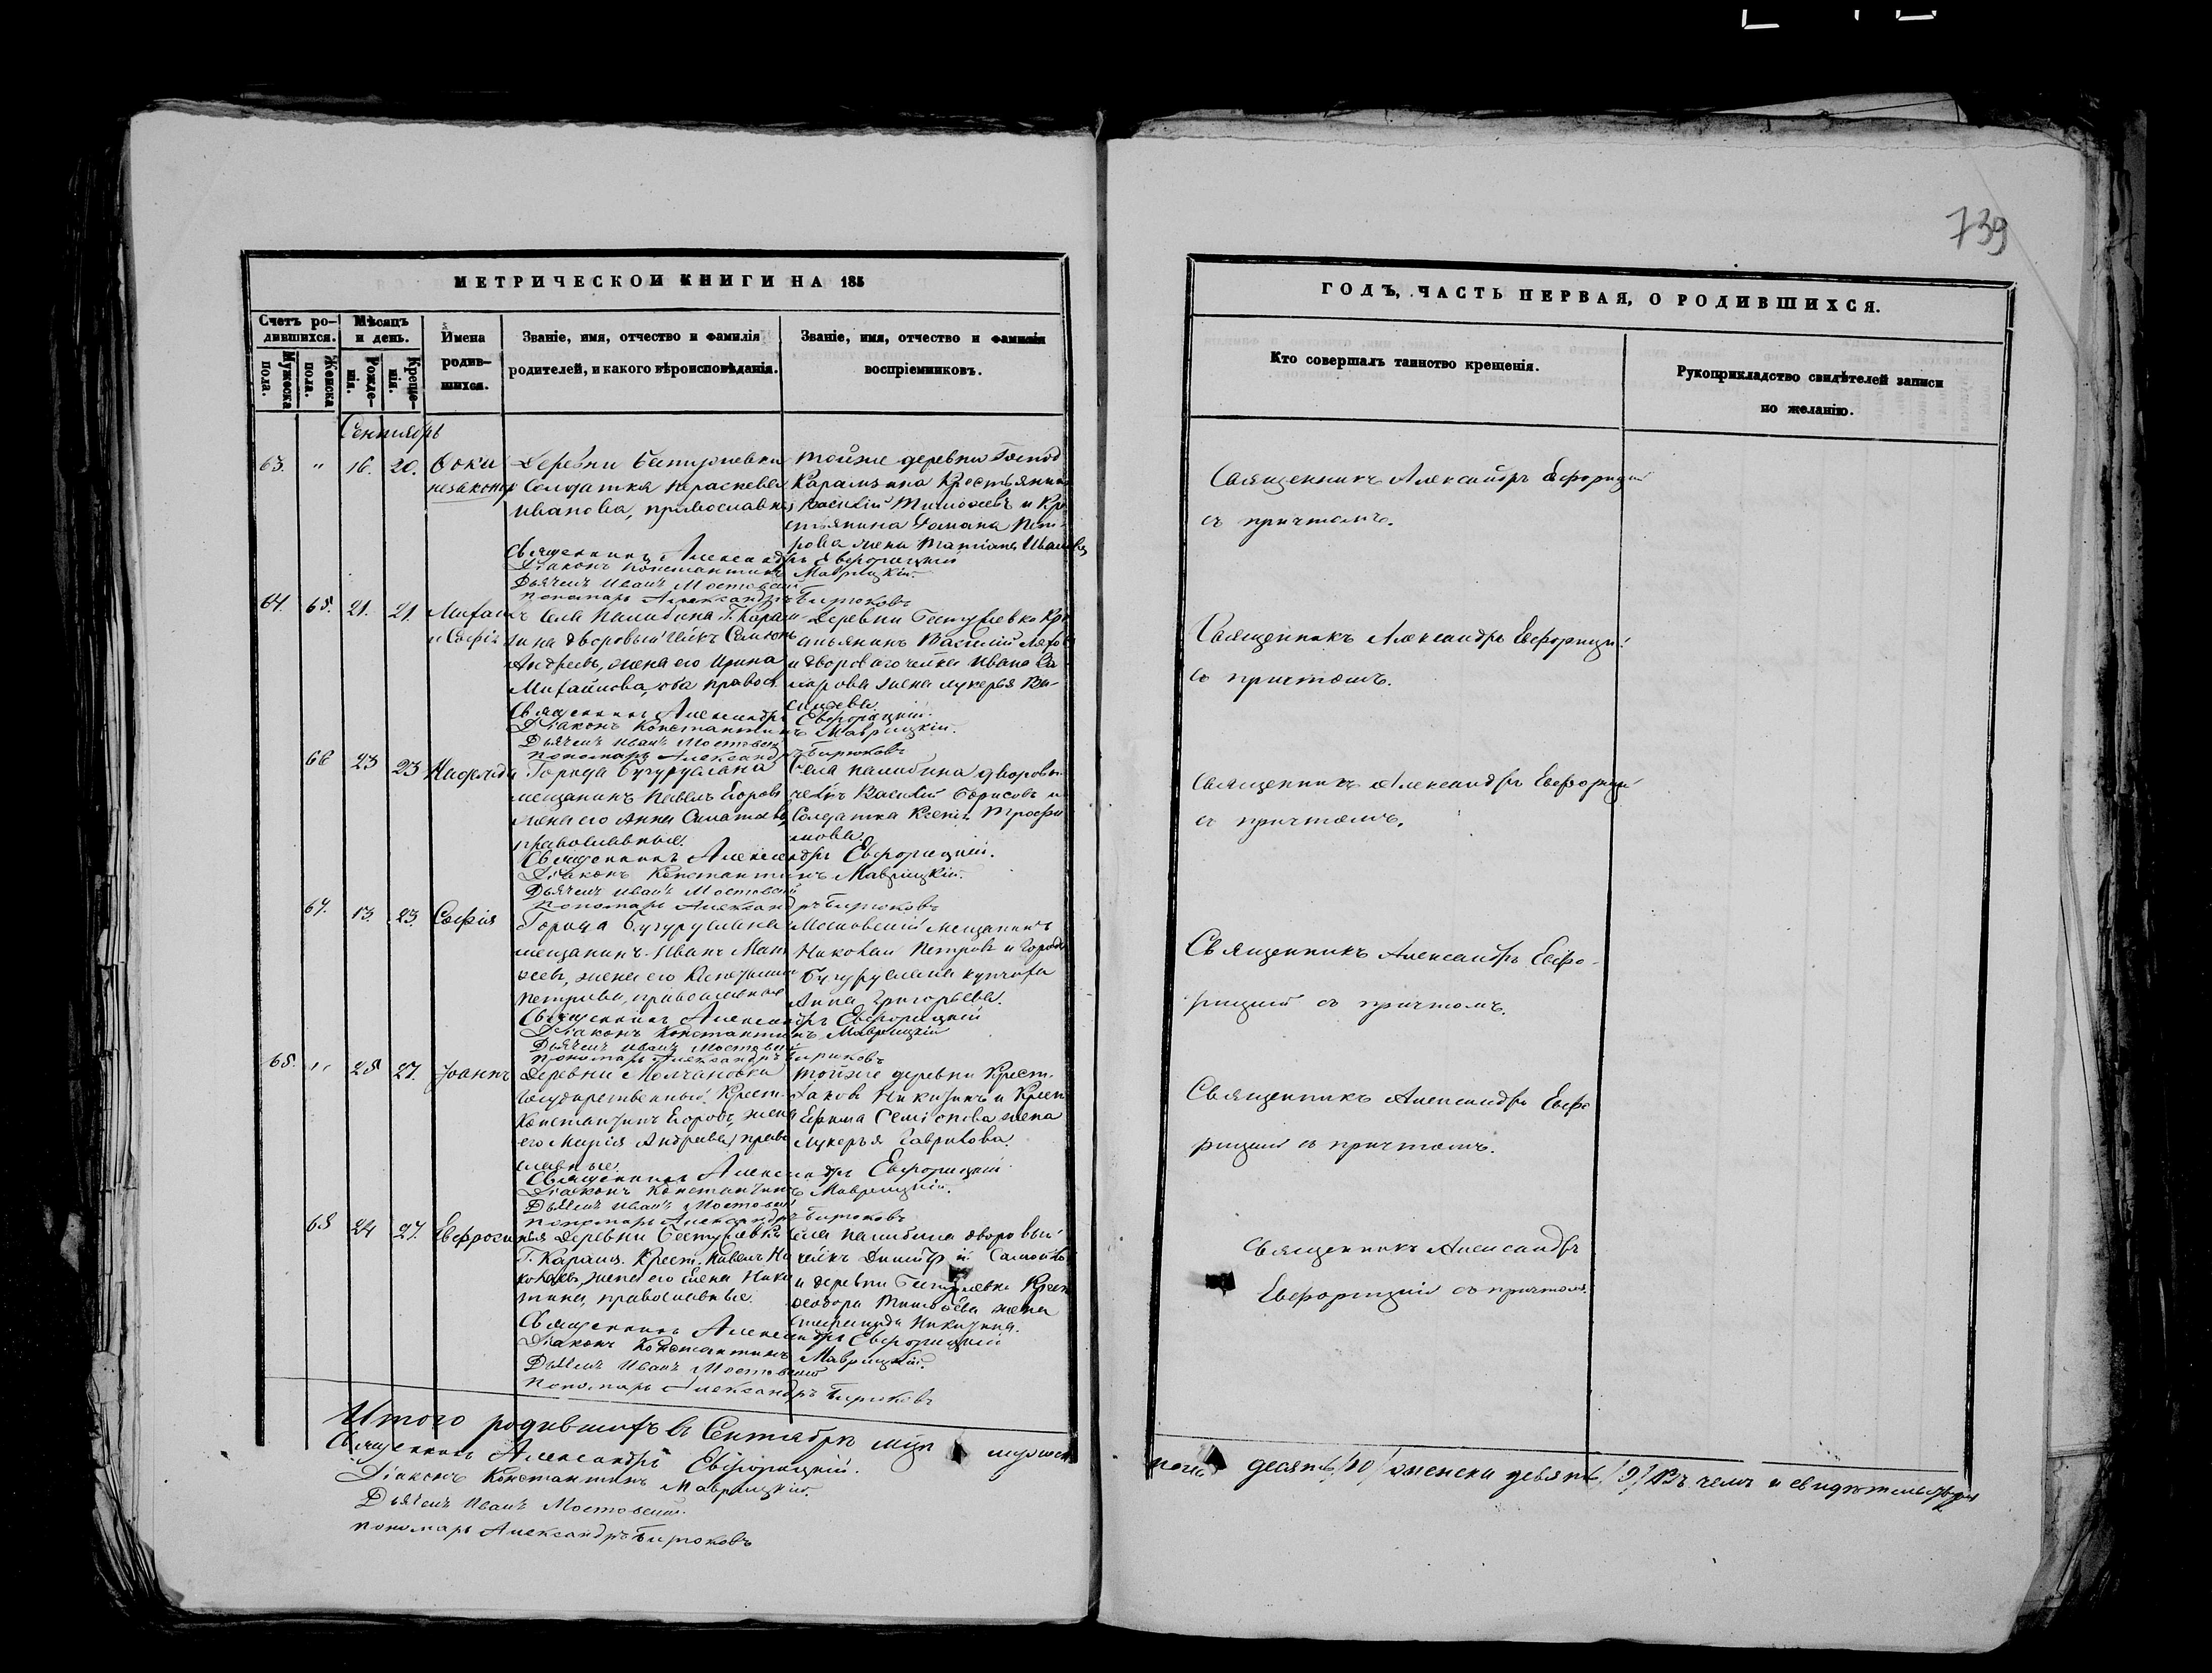 739
МЕТРИЧЕСКОЙ КНИГИ НА 185
ГОДЪ, ЧАСТЬ ПЕРВАЯ, О РОДИВШИХСЯ.
Счетъ ро-
дившихся.
Мужеска
пола.
Женска
пола.
Мѣсяцъ
и день.
Рожде-
нія.
Креще-
нія.
Имена
родив-
шихся.
Званіе, имя, отчество и фамилія
родителей, и какого вѣроисповѣданія.
Званіе, имя, отчество и фамилія
воспріемниковъ.
Кто совершалъ таинство крещенія.
Рукоприкладство свидѣтелей записи
по желанію.
Сентябрь
63. " 16. 20. Фока
незаконн
Деревни
Солдатка Параскева
Иванова, православна
тойже деревни Господ
Карамзина Крестьянин
Василій Тимофеевъ и Кре
стьянина Романа Пет-
рова жена Татіана Иванова
Священникъ Александръ Евфорицкій
Діаконъ Константинъ Маврицкій.
Дьячекъ Иванъ Мостовскій
Пономарь Александръ Бирюковъ
Священникъ Александръ Евфорицкій
съ причтомъ.
64. 65. 21. 21. Михаилъ
и Софія
Села Г. Карам-
зина дворовый челкъ Самсонъ
Андреевъ, жена его Ирина
Михайлова, оба правосл.
Деревни Кре
стьянинъ Василій
и двороваго челка Ивана За
харова жена Лукерья Ва-
сильева.
Священникъ Александръ Евфорицкій.
Діаконъ Константинъ Маврицкій.
Дьячекъ Иванъ Мостовскій
Пономарь Александръ Бирюковъ
Священникъ Александръ Евфорицкій
съ причтомъ.
66 23 23
Города Бугуруслана
мещанинъ Павелъ Егоровъ
жена его Анна
православные.
Села дворовый
челкъ Василій Борисовъ и
Солдатка Ксенія Трофи
мова.
Священникъ Александръ Евфорицкій.
Діаконъ Константинъ Маврицкій.
Дьячекъ Иванъ Мостовскій
Пономарь Александръ Бирюковъ
Священникъ Александръ Евфорицкій
съ причтомъ.
67. 13. 23. Софія
Города Бугуруслана
мещанинъ Иванъ Мат
жена его
Петрова, православные
Московскій мещанинъ
Николай Петровъ и Города
Бугуруслана купчиха
Анна Григорьева.
Священникъ Александръ Евфорицкій
Діаконъ Константинъ Маврицкій
Дьячекъ Иванъ Мостовскій
Пономарь Александръ Бирюковъ
Священникъ Александръ Евфо-
рицкій съ причтомъ.
65. " 25 27. Іоаннъ
Деревни Молчановки
государственный Крест.
Константинъ Егоровъ, жена
его Марія Андреева, право
славные.
тойже деревни Крест.
Яковъ Никитинъ и Крест
Ефима Семіонова жена
Лукерья Гаврилова.
Священникъ Александръ Евфорицкій.
Діаконъ Константинъ Маврицкій.
Дьячекъ Иванъ Мостовскій
Пономарь Александръ Бирюковъ
Священникъ Александръ Евфо
рицкій съ причтомъ.
68 24 27. Евфросинія
Деревни
Г. Карамз. Крест. Павелъ Ни
колаевъ, жена его Елена Ники
тина, православные.
села дворовый
челкъ Димитрій
и деревни Крест
Феодора жена
Степанида Никитина.
Священникъ Александръ Евфорицкій
Діаконъ Константинъ Маврицкій.
Дьячекъ Иванъ Мостовскій
Пономарь Александръ Бирюковъ
Священникъ Александръ
Евфорицкій съ причтомъ.
Итого родившихъ въ Сентябрѣ мужеска
пола десять /10/ женска девять /9/ Въ чемъ и свидѣтельствуемъ
Священникъ Александръ Евфорицкій.
Діаконъ Константинъ Маврицкій.
Дьячекъ Иванъ Мостовскій.
Пономарь Александръ Бирюковъ